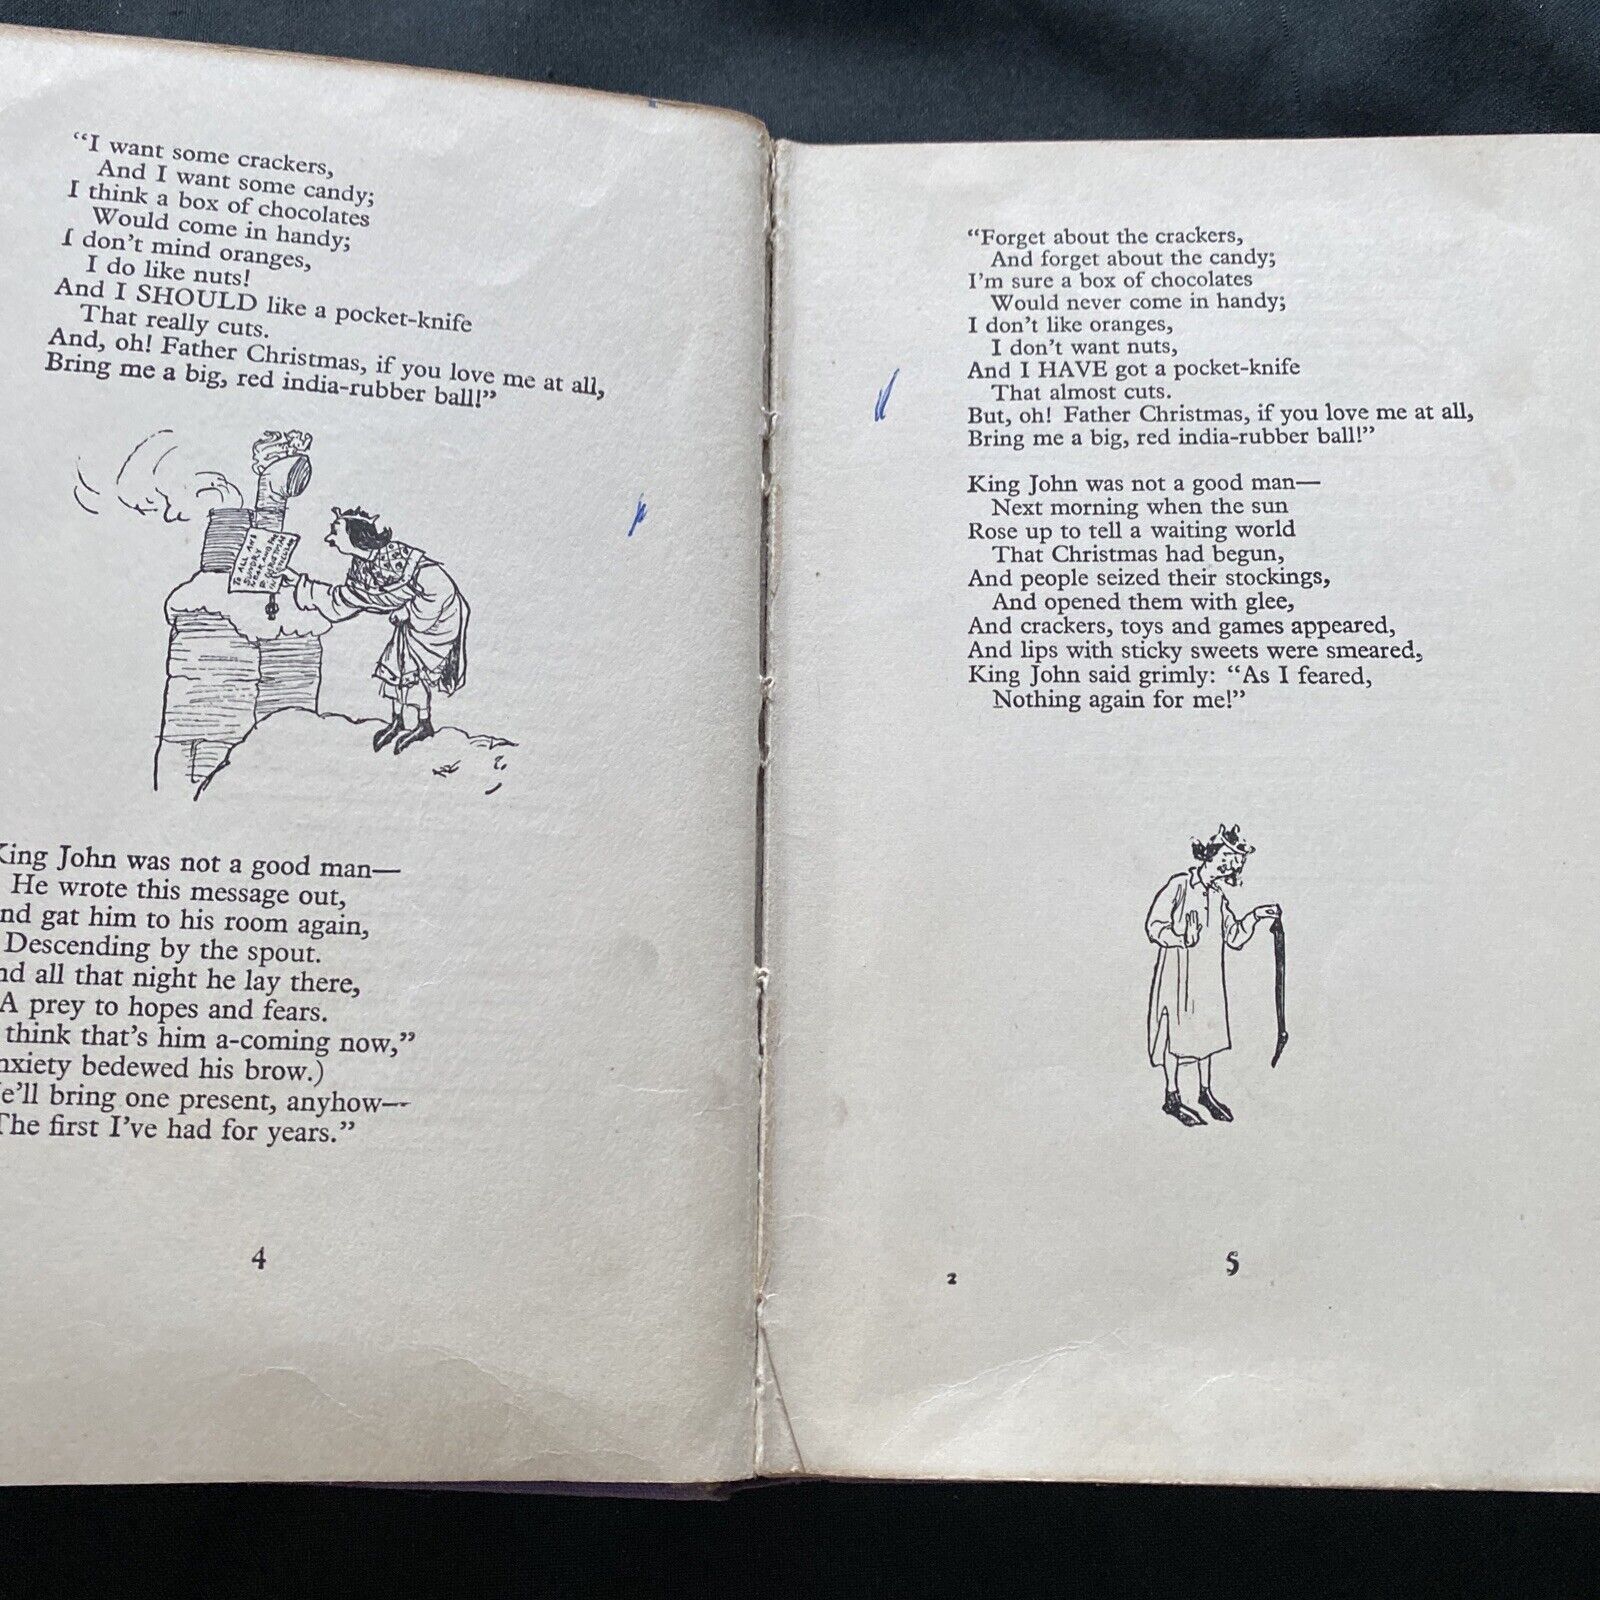 “I want some crackers,
And I want some candy;
I think a box of chocolates
Would come in handy;
I don't mind oranges,
I do like nuts!
And I SHOULD like a pocket-knife
That really cuts.
And, oh! Father Christmas, if you love me at all,
Bring me a big, red india-rubber ball!”
TO ALL AND
SUNDRY
NEAR AND FAR
F. CHRISTMAS
IN PARTICULAR
King John was not a good man—
He wrote this message out,
nd gat him to his room again,
Descending by the spout.
nd all that night he lay there,
A prey to hopes and fears.
think that's him a-coming now,”
nxiety bedewed his brow.)
e'll bring one present, anyhow—
The first I've had for years.”
4
“Forget about the crackers,
And forget about the candy;
I'm sure a box of chocolates
Would never come in handy;
I don't like oranges,
I don't want nuts,
And I HAVE got a pocket-knife
That almost cuts.
But, oh! Father Christmas, if you love me at all,
Bring me a big, red india-rubber ball!”
King John was not a good man—
Next morning when the sun
Rose up to tell a waiting world
That Christmas had begun,
And people seized their stockings,
And opened them with glee,
And crackers, toys and games appeared,
And lips with sticky sweets were smeared,
King John said grimly: “As I feared,
Nothing again for me!”
2
5